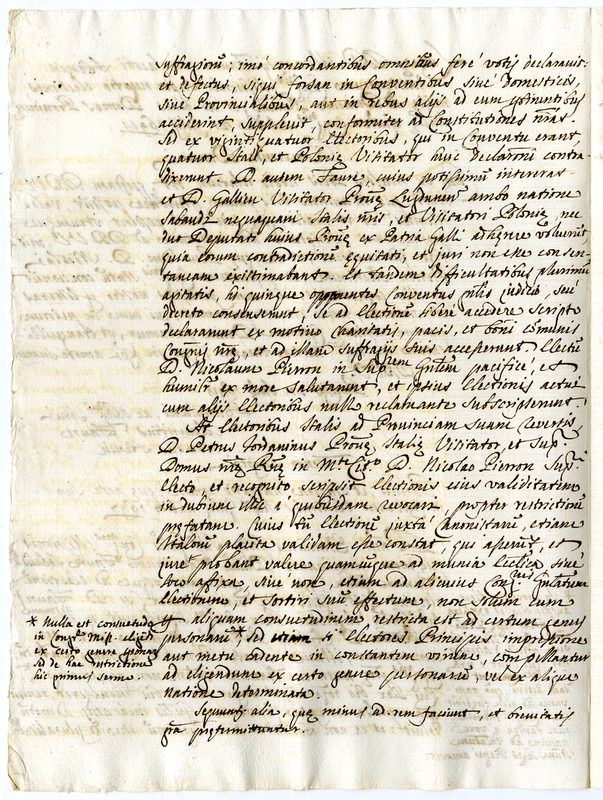 suffragiorũ; imò concordantibus omnibus ferè votis declaravit:
et defectus, siqui forsan in Conventibus sivè Domesticis,
sivè Provincialibus, aut in rebus alijs ad eum ptinentibus
acciderint, supplevit, conformiter ad Constitutiones nr̃as.
Sed ex viginti quatuor Electoribus, qui in Conventu erant,
quatuor Itali, et Poloniæ Visitator huic declarõni contra
dixerunt. D. autem Faure, cuius potissimũ intererat
et D. Gallien Visitator Prouæ Lugdunen ambo natione
Sabaudi nequaquam Italis nr̃is, et Visitatori Poloniæ, nec
duo Deputati huius Prouæ ex Patria Galli adhærere voluerũt
quia eorum contradictionẽ equitati, et juri non esse consen-
taneam existimabant. Et tandem difficultatibus plurimũ
agitatis, hi quinque opponentes Conventus judicio, seu
decreto consenserunt, se ad Electionẽ liberè accedere scripto
declararunt ex motivo charitatis, pacis, et boni cõmunis
Congnis nr̃æ, et ad illam suffragijs suis accesserunt. Electũ
D. Nicolaum Pierron in Suprem Gñlem pacificè, et
humilr̃ ex more salutarunt, et ipsius Electionis actui
cum alijs Electoribus nullo reclamante subscripserunt.
At Electoribus Italis ad Provinciam suam reversis,
D. Petrus Iordaninus Prouæ Italiæ Visitator, et Supr
Domus nr̃æ Romæ in Mte Cito D. Nicolao Pierron Supri
Electo et recognito scripsit Electionis eius validitatem
in dubium illic à quibusdam revocari, propter restrictionẽ
præfatam. Cuius tñ Electionẽ juxtà Canonistarũ, etiam
Italorũ placita validam esse constat, qui asserunt, et
jure probant valere quamcumque ad munia Ecclica sivè
loco affixa, sivè non, etiam ad alicuius Congnis Gñlatum
Electionem, et sortiri suũ effectum, non solùm cum
aliquam consuetudinem restricta est ad certum genus
personarũ*, sed si Electores Principis impressione
aut metu cadente in constantem virum, compellantur
ad eligendum ex certo genere personarũ, vel ex aliqua
natione determinata.
Sequuntr alia, quæ minus ad rem faciunt, et brevitatis
grã prætermittuntur.
* Nulla est consuetudo
in Congne Miss. eligẽdi
ex certo genere psonarũ
sed de hac restrictione
hic primus sermo.